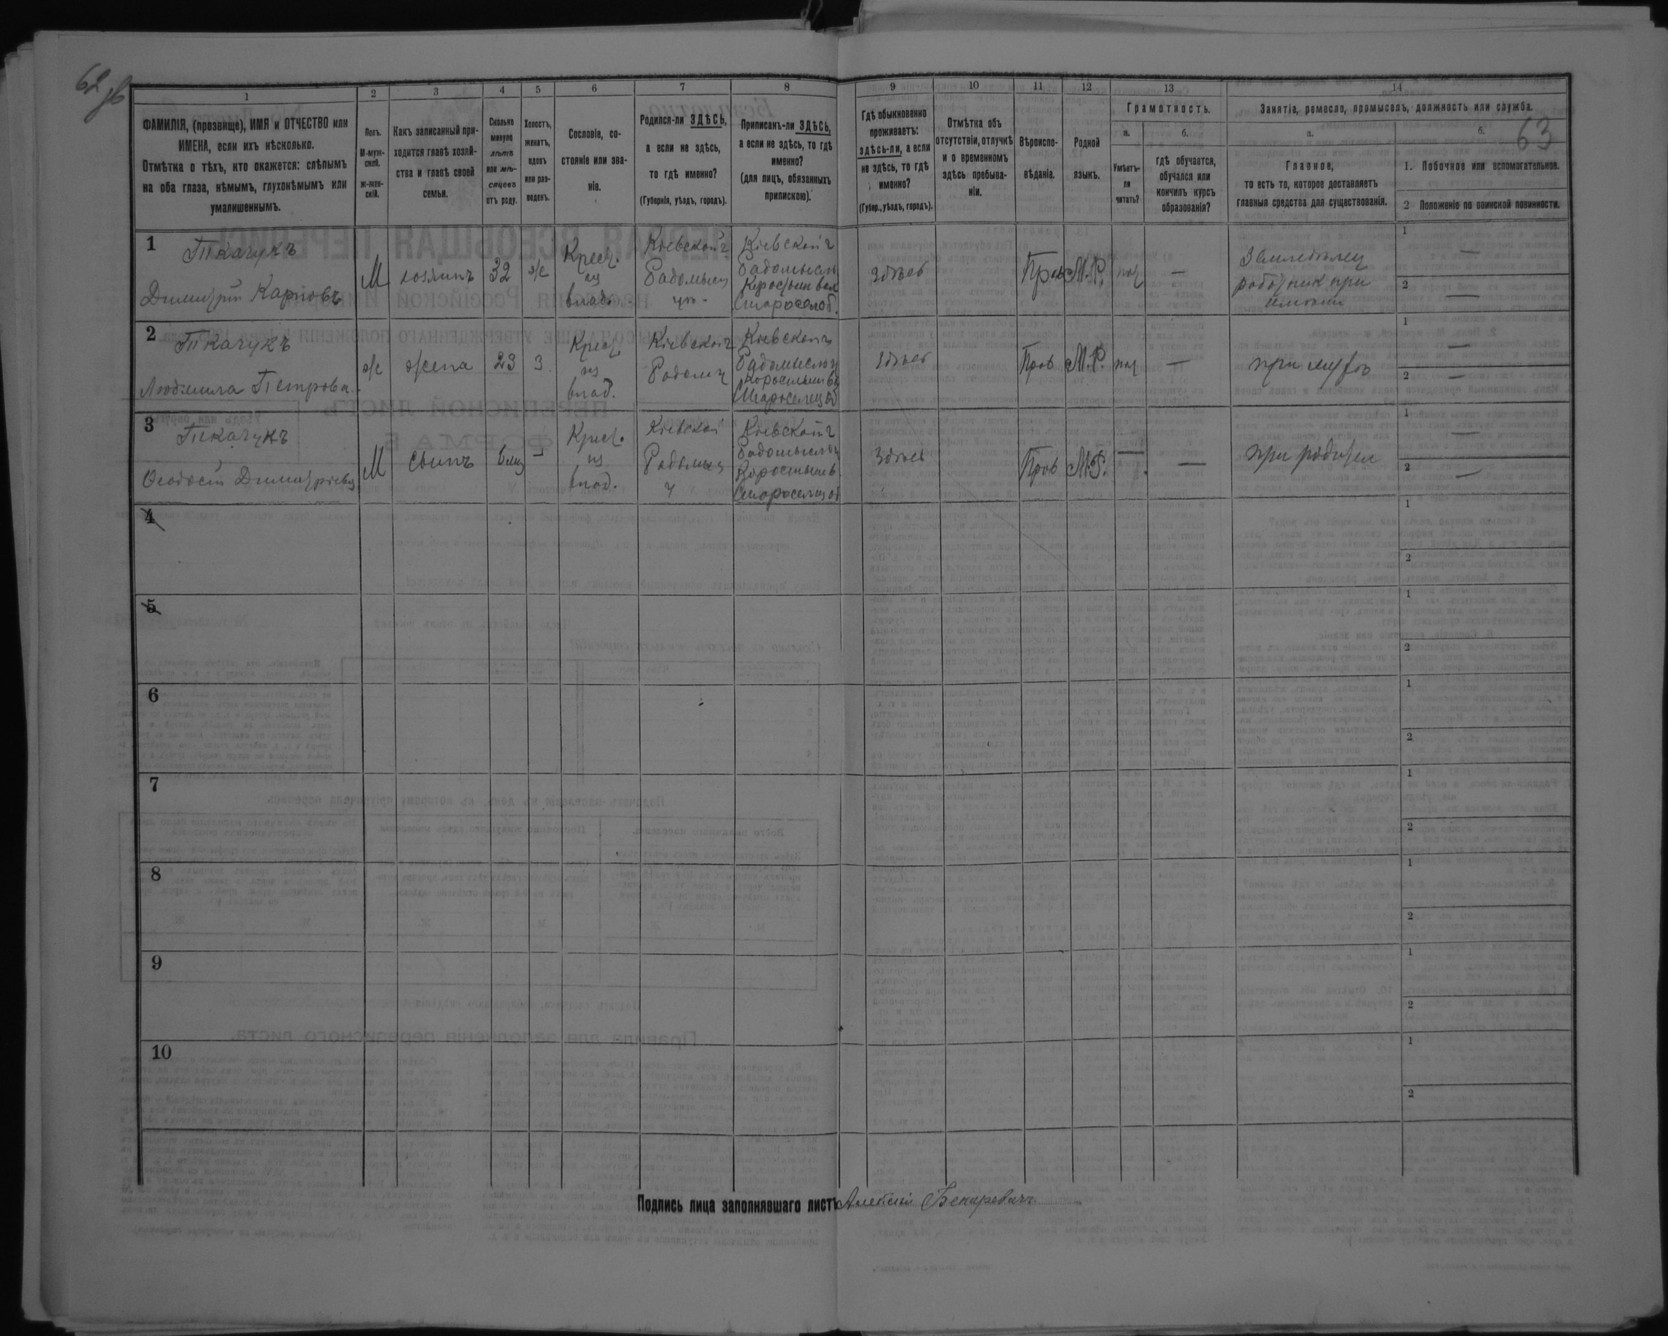 62 об
63
1
2
3
4
5
6
7
8
9
10
11
12
13
14
ФАМИЛІЯ, (прозвище), ИМЯ и ОТЧЕСТВО или
ИМЕНА, если ихъ нѣсколько.
Отмѣтка о тѣхъ, кто окажется: слѣпымъ
на оба глаза, нѣмымъ, глухонѣмымъ или
умалишеннымъ.
Полъ.
М-муж-
ской.
ж-жен-
скій.
Какъ записанный при-
ходится главѣ хозяй-
ства и главѣ своей
семьи.
Сколько
минуло
лѣтъ
или мѣ-
сяцевъ
отъ роду.
Холостъ,
женатъ,
вдовъ
или раз-
веденъ.
Сословіе, со-
стояніе или зва-
ніе.
Родился-ли ЗДѢСЬ,
а если не здѣсь,
то гдѣ именно?
(Губернія, уѣздъ, городъ).
Приписанъ-ли ЗДѢСЬ,
а если не здѣсь, то гдѣ
именно?
(для лицъ, обязанныхъ
припискою).
Гдѣ обыкновенно
проживаетъ:
здѣсь-ли, а если
не здѣсь, то гдѣ
именно?
(Губер., уѣздъ, городъ).
Отмѣтка объ
отсутствіи, отлучкѣ
и о временномъ
здѣсь пребыва-
ніи.
Вѣроиспо-
вѣданіе.
Родной
языкъ.
Грамотность.
а.
Умѣетъ-
ли
читать?
б.
гдѣ обучается,
обучался или
кончилъ курсъ
образованія?
Занятіе, ремесло, промыселъ, должность или служба.
а.
Главное,
то есть то, которое доставляетъ
главныя средства для существованія.
б.
1. Побочное или вспомогательное.
2 Положеніе по воинской повинности.
1
Ткачукъ
Димитрій Карповъ
М
хозяинъ
32
ж
Крест.
из
влад.
Кіевской г
Радомысл
у.
Кіевской г
Радомысл
Коростыш вол
Старосел об.
здѣсь
Прав
М.Р.
нѣт
—
Земледѣлец
работник при
имѣніи
1
—
2
—
2
Ткачукъ
Людмила Петрова
ж
жена
23
З
Крест
из
влад.
Кіевской г
Радомысл
Кіевской г
Радомысл у
Коростыш в
Староселец об
здѣсь
Прав
М.Р.
нѣт
—
при мужѣ
1
—
2
—
3
Ткачукъ
Феодосій Димитріевъ
М
сынъ
6 мц
—
Крест.
из
влад.
Кіевской
Радомысл
у
Кіевской г
Радомысл у
Коростыш в
Староселец об
здѣсь
Прав
М.Р.
—
—
при родител
1
—
2
—
4
1
2
5
1
2
6
1
2
7
1
2
8
1
2
9
1
2
10
1
2
Подпись лица заполнявшаго листъ Алексій